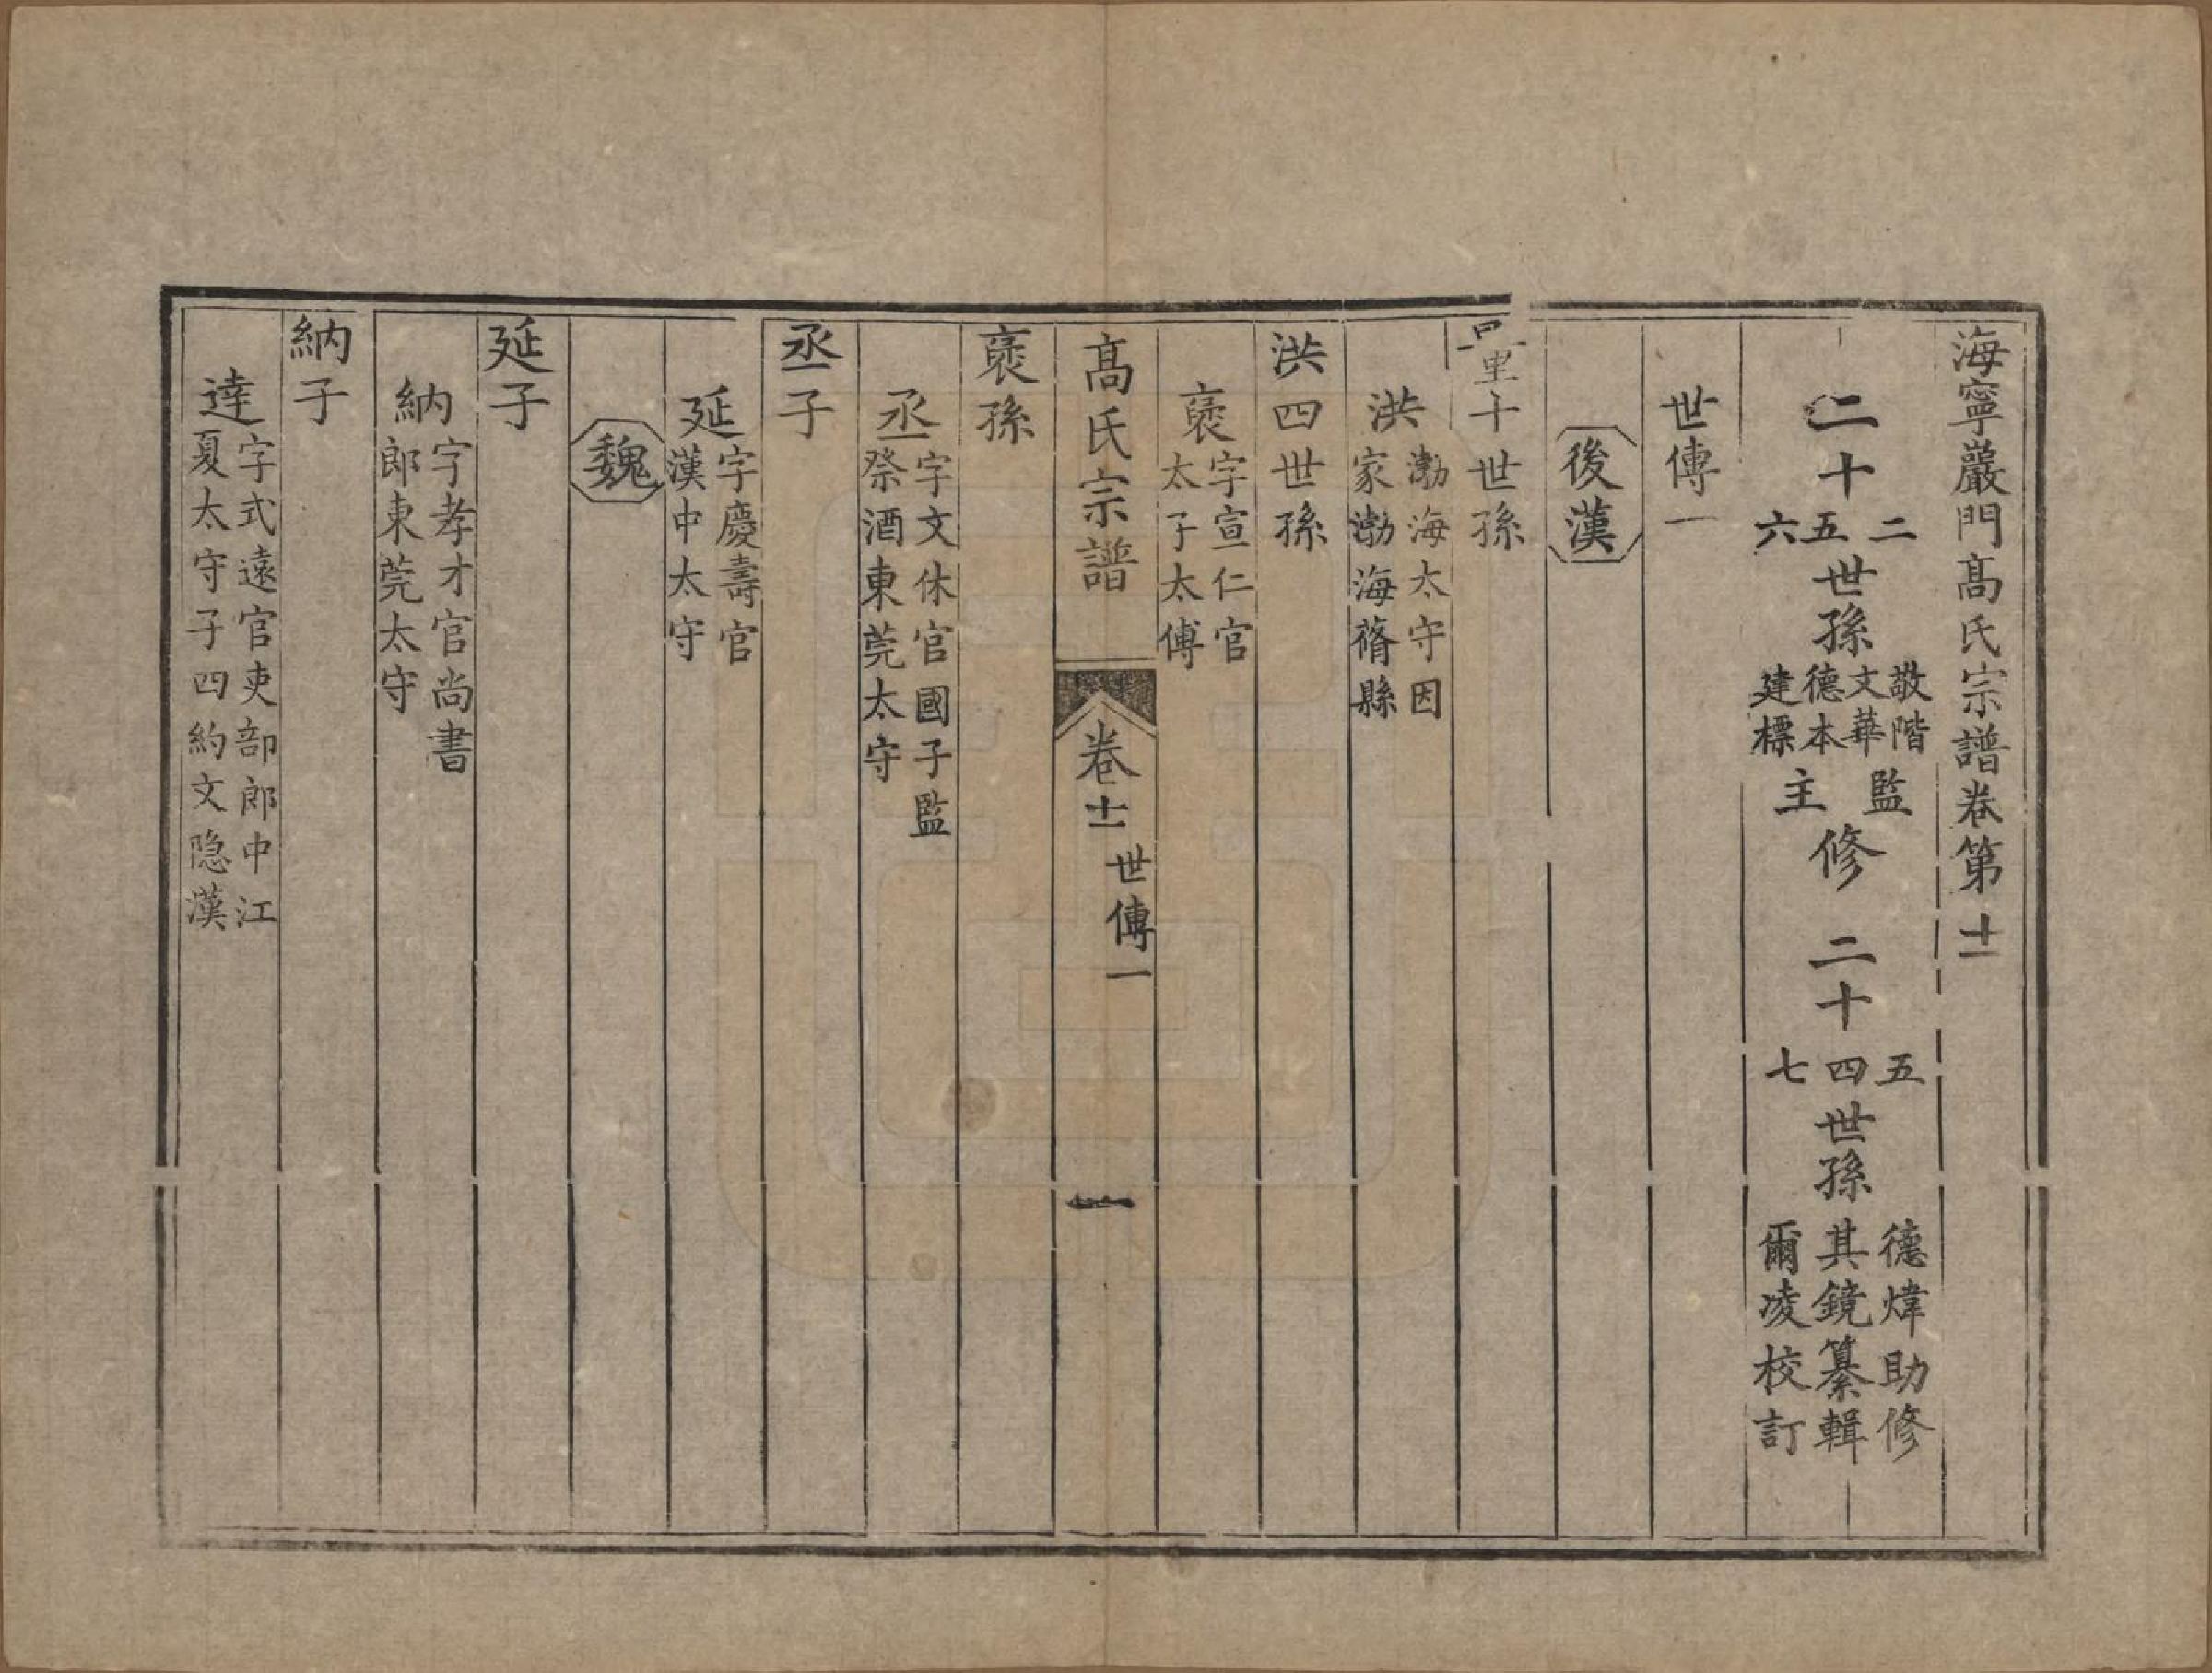 海寧嚴門髙氏宗譜卷第十一
二十二五六世孫敬階文華德本建標監主修 二十五四七世孫德煒助修其鏡纂輯爾凌校訂
世傳一
後漢
量十世孫
洪渤海太守因家渤海蓨縣
洪四世孫
襃字宣仁官太子太傅
襃孫
丞字文休官國子監祭酒東莞太守
丞子
延字慶壽官漢中太守
魏
延子
納字孝才官尚書郎東莞太守
納子
達字式遠官吏部郎中江夏太守子四約文隐漢
髙氏宗譜 卷十一 世傳一 一